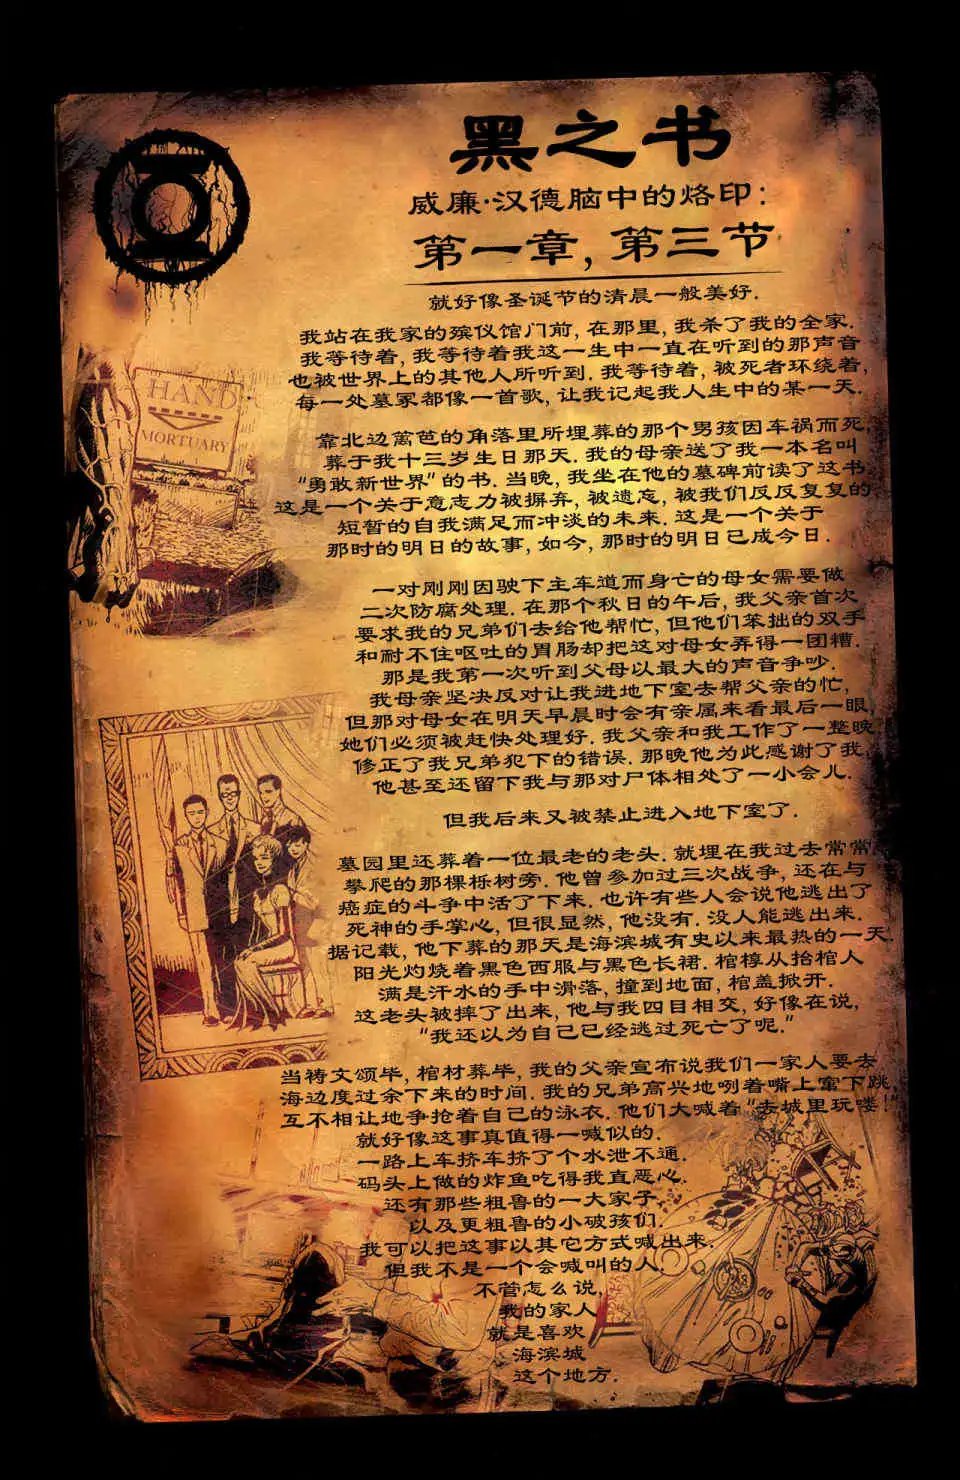 黑之书
威廉·汉德脑中的烙印：
第一章, 第三节
就好像圣诞节的清晨一般美好.
我站在我家的殡仪馆门前, 在那里, 我杀了我的全家.
我等待着, 我等待着我这一生中一直在听到的那声音
也被世界上的其他人所听到. 我等待着, 被死者环绕着,
每一处墓冢都像一首歌, 让我记起我人生中的某一天.
HAND
MORTUARY
靠北边篱笆的角落里所埋葬的那个男孩因车祸而死,
葬于我十三岁生日那天. 我的母亲送了我一本名叫
“勇敢新世界”的书. 当晚, 我坐在他的墓碑前读了这书.
这是一个关于意志力被摒弃, 被遗忘, 被我们反反复复的
短暂的自我满足而冲淡的未来. 这是一个关于
那时的明日的故事, 如今, 那时的明日已成今日.
一对刚刚因驶下主车道而身亡的母女需要做
二次防腐处理. 在那个秋日的午后, 我父亲首次
要求我的兄弟们去给他帮忙, 但他们笨拙的双手
和耐不住呕吐的胃肠却把这对母女弄得一团糟.
那是我第一次听到父母以最大的声音争吵.
我母亲坚决反对让我进地下室去帮父亲的忙,
但那对母女在明天早晨时会有亲属来看最后一眼,
她们必须被赶快处理好. 我父亲和我工作了一整晚
修正了我兄弟犯下的错误. 那晚他为此感谢了我,
他甚至还留下我与那对尸体相处了一小会儿.
但我后来又被禁止进入地下室了.
墓园里还葬着一位最老的老头. 就埋在我过去常常
攀爬的那棵栎树旁. 他曾参加过三次战争, 还在与
癌症的斗争中活了下来. 也许有些人会说他逃出了
死神的手掌心, 但很显然, 他没有. 没人能逃出来.
据记载, 他下葬的那天是海滨城有史以来最热的一天.
阳光灼烧着黑色西服与黑色长裙. 棺椁从抬棺人
满是汗水的手中滑落, 撞到地面, 棺盖掀开.
这老头被摔了出来, 他与我四目相交, 好像在说,
“我还以为自己已经逃过死亡了呢.”
当祷文颂毕, 棺材葬毕, 我的父亲宣布说我们一家人要去
海边度过余下来的时间. 我的兄弟高兴地咧着嘴上窜下跳,
互不相让地争抢着自己的泳衣. 他们大喊着“去城里玩喽!”
就好像这事真值得一喊似的.
一路上车挤车挤了个水泄不通.
码头上做的炸鱼吃得我直恶心.
还有那些粗鲁的一大家子
以及更粗鲁的小破孩们.
我可以把这事以其它方式喊出来.
但我不是一个会喊叫的人.
不管怎么说,
我的家人
就是喜欢
海滨城
这个地方.